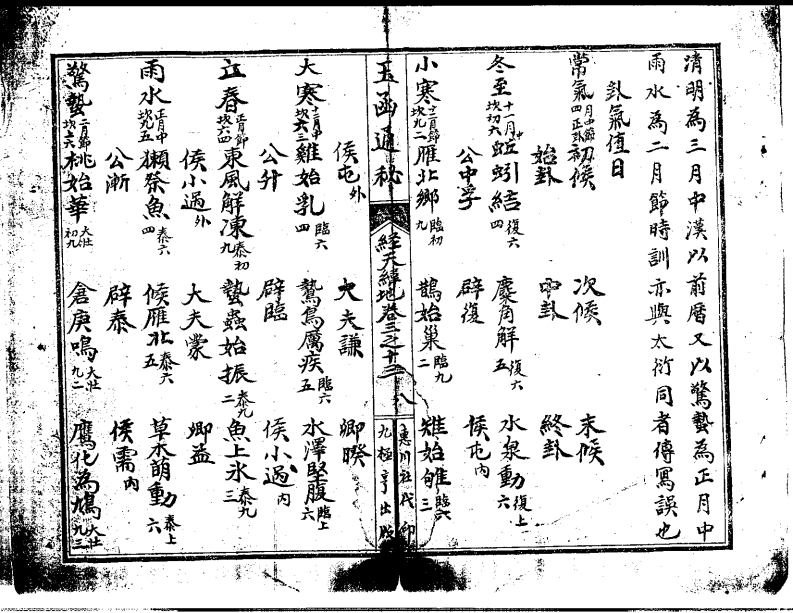 清明為三月中漢以前曆又以驚蟄為正月中
雨水為二月節時訓亦與太衍同者傳寫誤也
卦氣值日
常氣月中節四正卦 初候 次候 末候
始卦 中卦 終卦
冬至十一月中坎初六 蚯蚓結復六四 麋角解復六五 水泉動復上六
公中孚 辟復 侯屯內
小寒十二月節坎九二 雁北鄉臨初九 鵲始巢臨九二 雉始雊臨六三
玉函通秘 経天緯地卷三之十三 八 惠川社代印 九極亨出版
侯屯外 大夫謙 卿睽
大寒十二月中坎六三 雞始乳臨六四 鷙鳥厲疾臨六五 水澤堅腹臨上六
公升 辟臨 侯小過內
立春正月節坎六四 東風解凍泰初九 蟄蟲始振泰九二 魚上氷泰九三
侯小過外 大夫蒙 卿益
雨水正月中坎九五 獺祭魚泰六四 候雁北泰六五 草木萌動泰上六
公漸 辟泰 侯需內
驚蟄二月節坎上六 桃始華大壯初九 倉庚鳴大壯九二 鷹化為鳩大壯九三